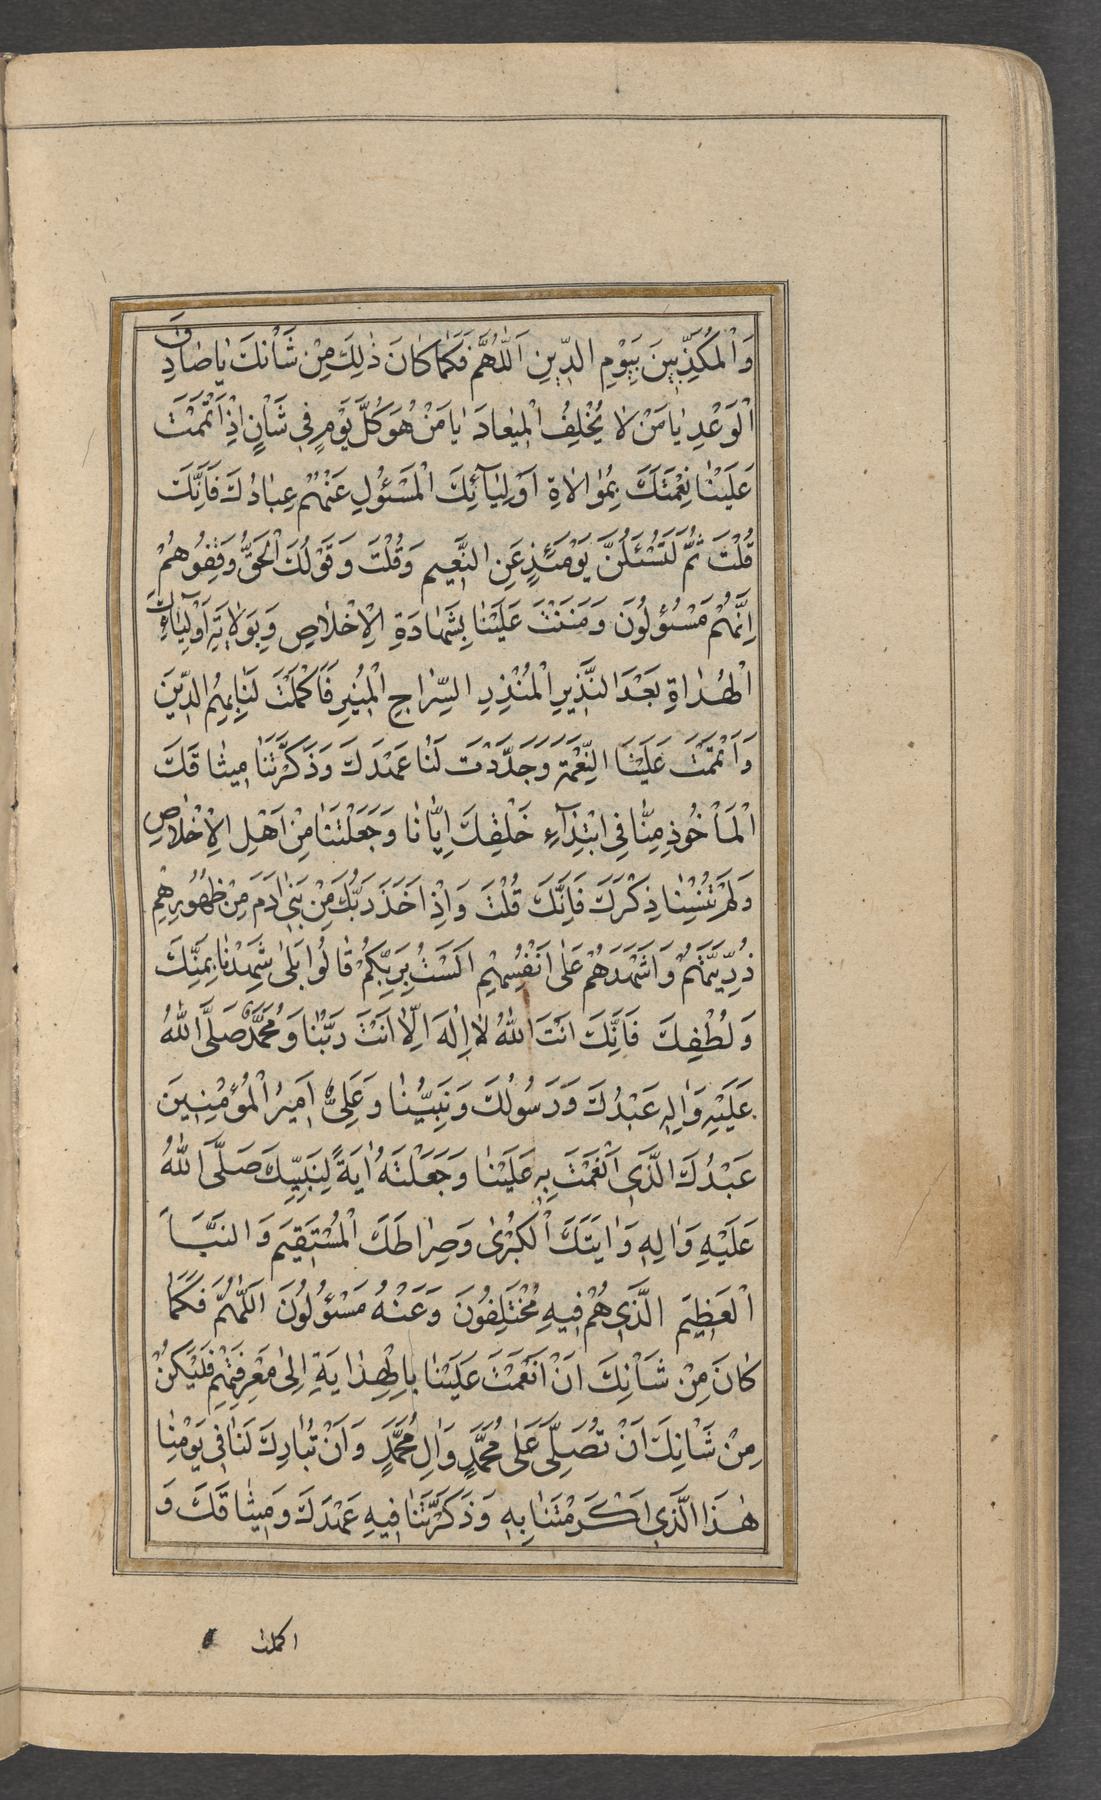 وَالْمُكَذِّبِينَ بِيَوْمِ الدِّينِ اَللّٰهُمَّ فَكَمَا كَانَ ذٰلِكَ مِنْ شَأْنِكَ يٰا صٰادِقَ
الْوَعْدِ يٰا مَنْ لٰا يُخْلِفُ الْمِيعٰادَ يٰا مَنْ هُوَ كُلَّ يَوْمٍ فِي شَأْنٍ اِذْ اَتْمَمْتَ
عَلَيْنٰا نِعْمَتَكَ بِمُوٰالٰاةِ اَوْلِيٰآئِكَ الْمَسْئُولِ عَنْهُمْ عِبٰادُكَ فَاِنَّكَ
قُلْتَ ثُمَّ لَتُسْئَلُنَّ يَوْمَئِذٍ عَنِ النَّعِيمِ وَقُلْتَ وَقَوْلُكَ الْحَقُّ وَقِفُوهُمْ
اِنَّهُمْ مَسْئُولُونَ وَمَنَنْتَ عَلَيْنٰا بِشَهٰادَةِ الْاِخْلٰاصِ وَبِوَلٰايَةِ اَوْلِيٰآئِكَ
الْهُدٰاةِ بَعْدَ النَّذِيرِ الْمُنْذِرِ السِّرٰاجِ الْمُنِيرِ فَاَكْمَلْتَ لَنٰا بِهِمُ الدِّينَ
وَاَتْمَمْتَ عَلَيْنَا النِّعْمَةَ وَجَدَّدْتَ لَنٰا عَهْدَكَ وَذَكَّرْتَنٰا مِيثٰاقَكَ
الْمَأْخُوذِ مِنّٰا فِي ابْتِدٰآءِ خَلْقِكَ اِيّٰانٰا وَجَعَلْتَنٰا مِنْ اَهْلِ الْاِخْلٰاصِ
وَلَمْ تُنْسِنٰا ذِكْرَكَ فَاِنَّكَ قُلْتَ وَاِذْ اَخَذَ رَبُّكَ مِنْ بَنِي اٰدَمَ مِنْ ظُهُورِهِمْ
ذُرِّيَّتَهُمْ وَاَشْهَدَهُمْ عَلٰى اَنْفُسِهِمْ اَلَسْتُ بِرَبِّكُمْ قٰالُوا بَلٰى شَهِدْنٰا بِمَنِّكَ
وَلُطْفِكَ فَاِنَّكَ اَنْتَ اللّٰهُ لٰا اِلٰهَ اِلّٰا اَنْتَ رَبُّنٰا وَمُحَمَّدٌ صَلَّى اللّٰهُ
عَلَيْهِ وَاٰلِهِ عَبْدُكَ وَرَسُولُكَ وَنَبِيُّنٰا وَعَلِيٌّ اَمِيرُ الْمُؤْمِنِينَ
عَبْدُكَ الَّذِي اَنْعَمْتَ بِهِ عَلَيْنٰا وَجَعَلْتَهُ اٰيَةً لِنَبِيِّكَ صَلَّى اللّٰهُ
عَلَيْهِ وَاٰلِهِ وَاٰيَتَكَ الْكُبْرٰى وَصِرٰاطَكَ الْمُسْتَقِيمَ وَالنَّبَأَ
الْعَظِيمَ الَّذِي هُمْ فِيهِ مُخْتَلِفُونَ وَعَنْهُ مَسْئُولُونَ اَللّٰهُمَّ فَكَمٰا
كٰانَ مِنْ شَأْنِكَ اَنْ اَنْعَمْتَ عَلَيْنٰا بِالْهِدٰايَةِ اِلٰى مَعْرِفَتِهِمْ فَلْيَكُنْ
مِنْ شَأْنِكَ اَنْ تُصَلِّيَ عَلٰى مُحَمَّدٍ وَاٰلِ مُحَمَّدٍ وَاَنْ تُبٰارِكَ لَنٰا فِي يَوْمِنٰا
هٰذَا الَّذِي اَكْرَمْتَنٰا بِهِ وَذَكَّرْتَنٰا فِيهِ عَهْدَكَ وَمِيثٰاقَكَ وَ
اكملت